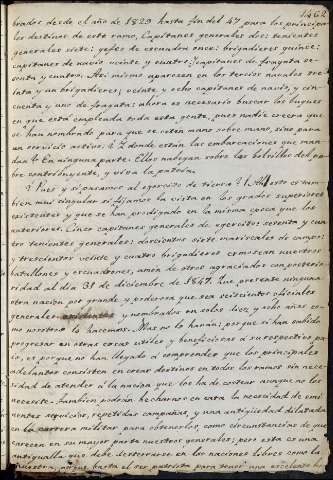 1462
brados desde el año de 1829 hasta fin del 47 para los principa-
les destinos de este ramo, Capitanes generales dos: tenientes
generales siete: gefes de escuadra once: brigadieres quince:
capitanes de navío veinte y cuatro: capitanes de fragata se-
senta y cuatro. Asi mismo aparecen en los tercios navales tre-
inta y un brigadieres, veinte y ocho capitanes de navío, y cin-
cuenta y uno de fragata: ahora es necesario buscar los buques
en que está empleada toda esta gente, pues nadie creerá que
se han nombrado para que se estén mano sobre mano, sino para
un servicio activo. ¿Y donde están las embarcaciones que man-
dan? En ninguna parte. Ellos nabegan sobre los bolsillos del po-
bre contribuyente, y viva la patria.
¿Pues y si pasamos al egercito de tierra? ¡Ah! esto es tam-
bien muy singular si fijamos la vista en los grados superiores
existentes y que se han prodigado en la misma época que los
anteriores. Cinco capitanes generales de egercito: sesenta y cua-
tro tenientes generales: doscientos siete mariscales de campo:
y trescientos veinte y cuatro brigadieres
batallones y escuadrones, amén de otros agraciados con posterio-
ridad al dia 31 de diciembre de 1847. Que presente ninguna
otra nacion por grande y poderosa que sea seiscientos oficiales
generales y nombrados en solos diez y ocho años co-
mo nosotros lo hacemos. Mas no lo harán: porque si han subido
progresar en otras cosas utiles y beneficiosas á su respectivo pa-
is, es porque no han llegado á comprender que los principales
adelantos consisten en crear destinos en todos los ramos sin nece-
sidad de atender á la nacion que los ha de costear aunque no los
necesite. Tambien podrán hecharnos en cara la necesidad de emi-
nentes servicios, repetidas campañas, y una antigüedad dilatada
en la carrera militar para obtenerlos, como circunstancias de que
carecen en su mayor parte nuestros generales; pero esta es una
antigualla que debe desterrarse en las naciones libres como la
nuestra, porque basta el ser patriota para tener una escelente ho-